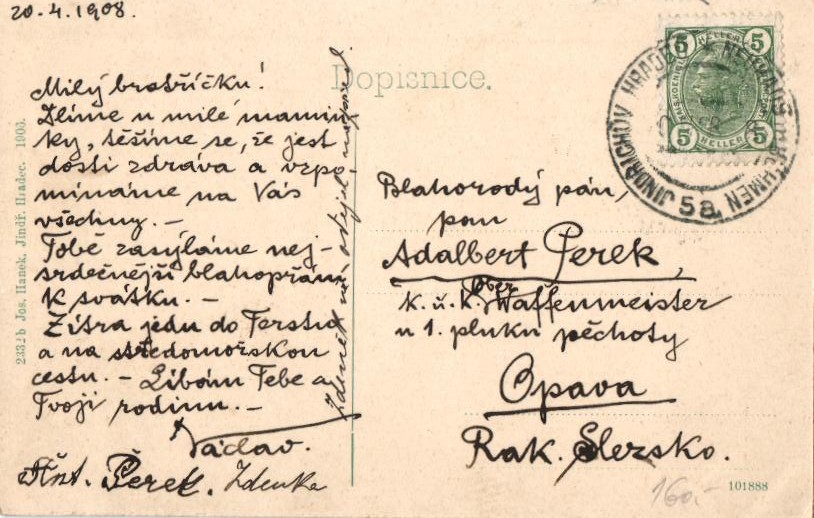 20.4.1908.
Dopisnice.
Milý bratříčku!
Dlíme u milé mamin
ky, těšíme se, že jest
dosti zdráva a vzpo-
mínáme na Vás
všechny. –
Tobě zasýláme nej-
srdečnější blahopřání
k svátku. –
Zítra jedu do Terstu
a na středomořskou
cestu. – Líbám Tebe a
Tvoji rodinu. –
Václav.
Ant. Perek. Zdenka
Zdeněk
2332b Jos. Hanek, Jindř. Hradec. 1906.
5 HELLER 5
5 HELLER 5
JINDŘICHŮV HRADEC * NEUHAUS IN BÖHMEN
5a
Blahorodý pán,
pan
Adalbert Perek,
k. u. k. Ober Waffenmeister
u 1. pluku pěchoty
Opava
Rak. Slezsko.
160.-
101888